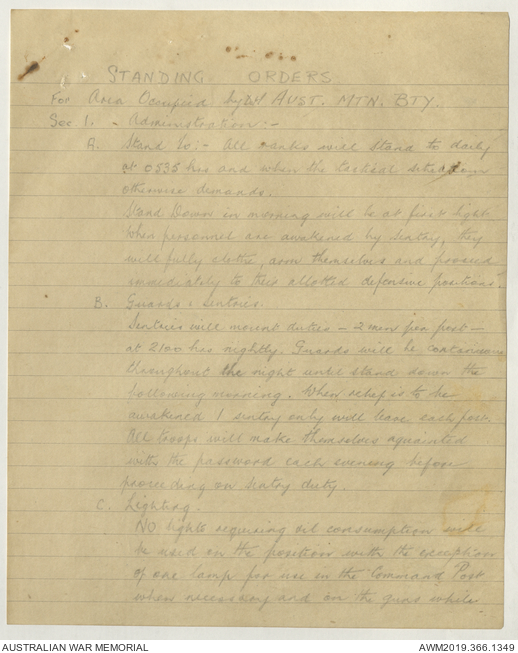 STANDING ORDERS
For Area Occupied by 1st AUST. MTN. BTY.
Sec 1. - Administration:-
A. Stand to:- All ranks will Stand to daily
at 0535 hrs and when the tactical situation
otherwise demands.
Stand Down in morning will be at first light
When personnel are awakened by Sentry, they
will fully clothe, arm themselves and proceed
immediately to their allotted defensive positions.
B. Guards & Sentries.
Sentries will mount duties - 2 men per post -
at 2100 hrs nightly. Guards will be continuous
throughout the night until stand down the
following morning. When relief is to be
awakened 1 sentry only will leave each post.
All troops will make themselves aquainted
with the password each evening before
proceeding on sentry duty.
C. Lighting.
No lights requiring oil consumption will
be used on the position with the exception
of one lamp for use in the Command Post
when necessary and on the guns while
AUSTRALIAN WAR MEMORIAL
AWM2019.366.1349